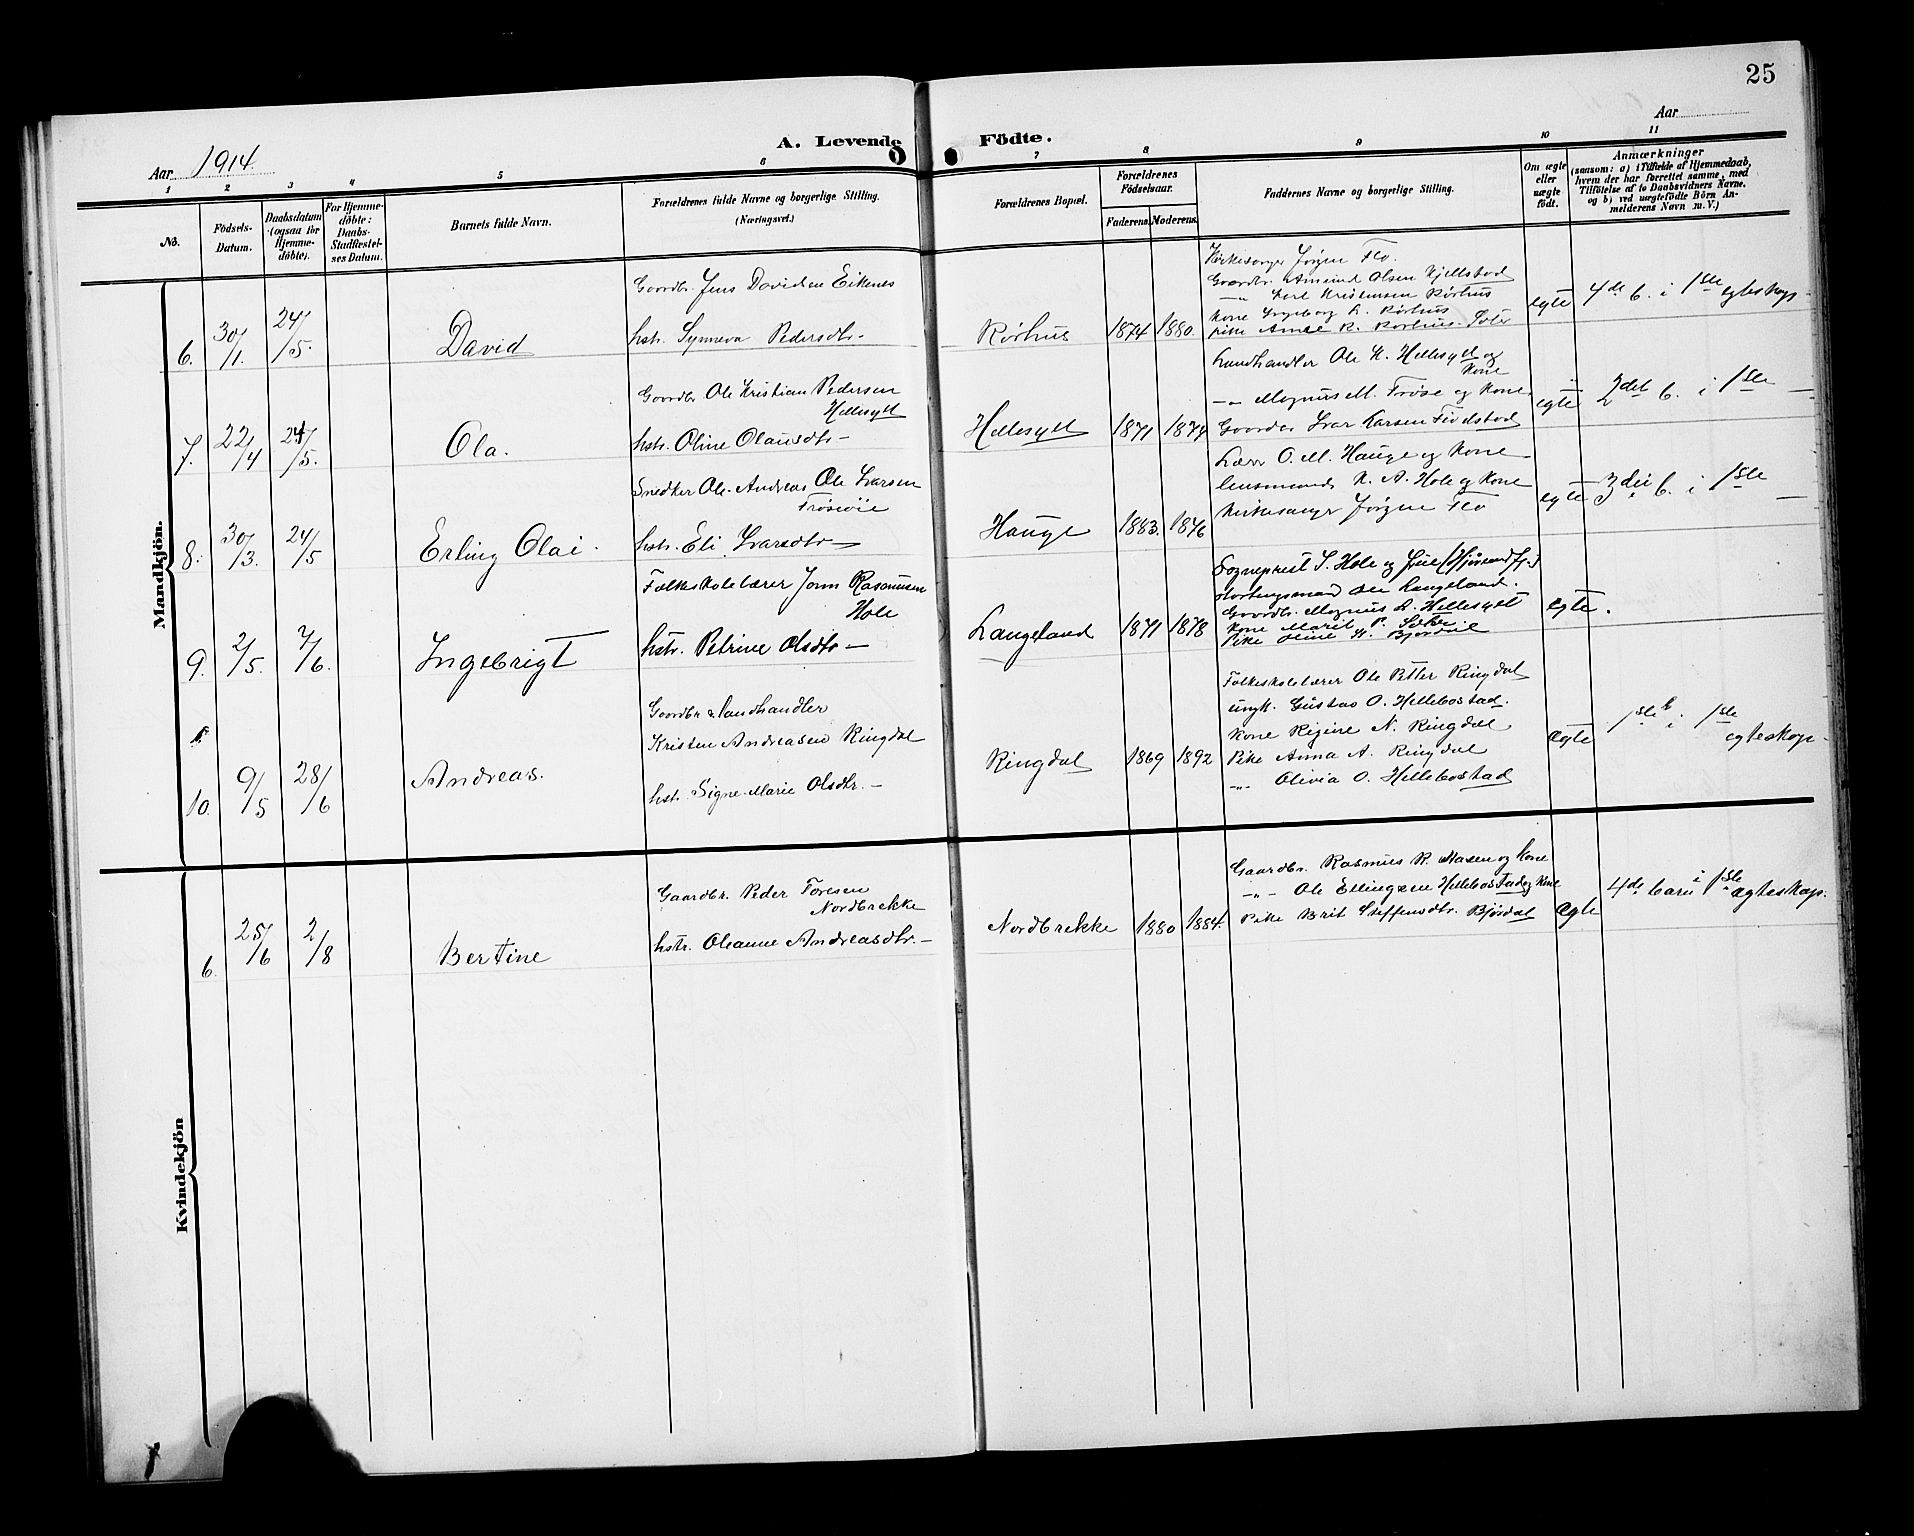 25
Aar 1914
A. Levende Födte.
Aar
1 2 3 4 5 6 7 8 9 10 11
No.
Födsels-Datum.
Daabsdatum (ogsaa for Hjemme-döbte).
For Hjemme-döbte: Daabs-Stadfæstel-ses Datum.
Barnets fulde Navn.
Forældrenes fulde Navne og borgerlige Stilling.
(Næringsvei.)
Forældrenes Bopæl.
Forældrenes Födselsaar.
Faderens. Moderens.
Faddernes Navne og borgerlige Stilling.
Om ægte eller uægte födt.
Anmærkninger
(saasom: a) i Tilfælde af Hjemmedaab,
hvem der har forrettet samme, med
Tilföielse af to Daabsvidners Navne.
og b) ved uægtefödte Börn An-
melderens Navn m. V.)
Mandkjön.
6. 30/1. 24/5. David
Gaardbr. Jens Davidsen Eikenes
hstr. Synneva Pedersdtr.
Rørhus 1874 1880.
Kirkesanger Jørgen Flo.
Gaardbr. Amund Olsen Kjellstad
-"- Karl Kristensen Rørhus
Kone Ingeborg K. Rørhus
pike Anne R. Rørhus.
egte 4de b. i 1ste egteskap
7. 22/4 24/5. Ola.
Gaardbr Ole Kristian Pedersen
Hellesylt
hstr. Oline Olausdtr -
Hellesylt 1871 1874
Landhandler Ole K. Hellesylt og
Kone
-"- Magnus M. Frøse og Kone
Gaardbr Ivar Larsen Fivelstad
egte 2det b. i 1ste -
8. 30/3. 24/5 Erling Olai.
Snedker Ole Andreas Ole Ivarsen
Frøsøie
hstr. Eli Ivarsdtr -
Hauge 1883. 1876
Lærer O. M. Hauge og Kone
lensmand K. A. Hole og Kone
Kirkesanger Jørgen Flo
egte 3die b. i 1ste -
9. 2/5. 7/6. Ingebrigt
Folkeskolelærer Jonn Rasmussen
Hole
hstr. Petrine Olsdtr -
Langeland 1871 1878
Sogneprest S. Hole og Frue
stortingsmand Langeland.
Gaardbr. Magnus L. Hellesylt
Kone Marit P.
Pike Oline K. Bjørdal
egte.
10. 9/5 28/6 Andreas.
Gaardbr & landhandler
Kristen Andreasen Ringdal
hstr. Signe Marie Olsdtr. -
Ringdal 1869 1892
Folkeskolelærer Ole Petter Ringdal
ungk. Gustav O. Hellebostad.
Kone Regine N. Ringdal
Pike Anna A. Ringdal
-"- Olivia O. Hellebostad
ægte 1ste b. i 1ste
egteskap -
Kvindekjön
6. 25/6 2/8 Bertine
Gaardbr. Peder Toresen
Nordbrekke
hstr. Oleanne Andreasdtr. -
Nordbrekke 1880 1884.
Gaardbr. Rasmus R. og Kone
-"- Ole Ellingsen Hellebostad og Kone
Pike Brit Steffensdtr. Bjørdal
ægte 4de barn i 1ste ægteskap.